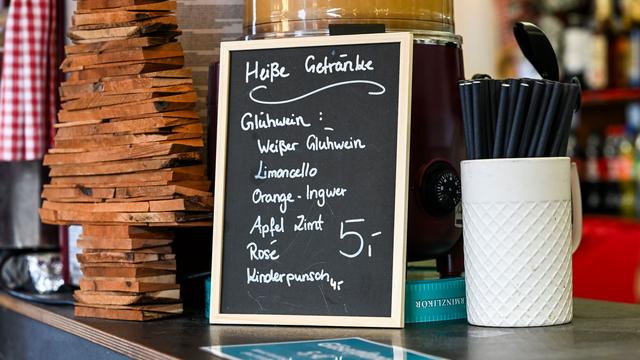 Heiße Getränke
Glühwein :
Weißer Glühwein
Limoncello
Orange-Ingwer
Apfel Zimt 5,-
Rosé
Kinderpunsch 4,-
RMINZLIKÖR